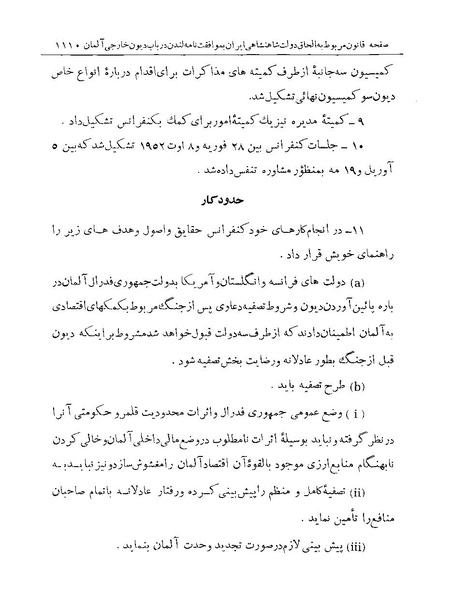 صفحه قانون مربوط به الحاق دولت شاهنشاهی ایران بموافقت نامه لندن در باب دیون خارجی آلمان ۱۱۱۰
کمیسیون سه جانبهٔ از طرف کمیته های مذاکرات برای اقدام در بارهٔ انواع خاص
دیون سو کمیسیون نهائی تشکیل شد.
۹ – کمیتهٔ مدیره نیز یك کمیتهٔ امور برای کمك بکنفرانس تشکیل داد .
۱۰ – جلسات کنفرانس بین ۲۸ فوریه و ۸ اوت ۱۹۵۲ تشکیل شد که بین ۵
آوریل و ۱۹ مه بمنظور مشاوره تنفس داده شد .
حدود کار
۱۱– در انجام کارهای خود کنفرانس حقایق و اصول وهدف های زیر را
راهنمای خویش قرار داد .
(a) دولت های فرانسه و انگلستان و آمریکا بدولت جمهوری فدرال آلمان در
باره پائین آوردن دیون و شروط تصفیه دعاوی پس از جنگ مربوط بکمکهای اقتصادی
به آلمان اطمینان دادند که از طرف سه دولت قبول خواهد شد مشروط بر اینکه دیون
قبل از جنگ بطور عادلانه ورضایت بخش تصفیه شود .
(b) طرح تصفیه باید .
(i) وضع عمومی جمهوری فدرال و اثرات محدودیت قلمرو حکومتی آنرا
در نظر گرفته و نباید بوسیلهٔ اثرات نامطلوب در وضع مالی داخلی آلمان و خالی کردن
نابهنگام منابع ارزی موجود بالقوهٔ آن اقتصاد آلمان را مغشوش سازد و نیز نباید به
(ii) تصفیهٔ کامل و منظم را پیش بینی کرده ورفتار عادلانه باتمام صاحبان
منافع را تأمین نماید .
(iii) پیش بینی لازم در صورت تجدید وحدت آلمان بنماید .